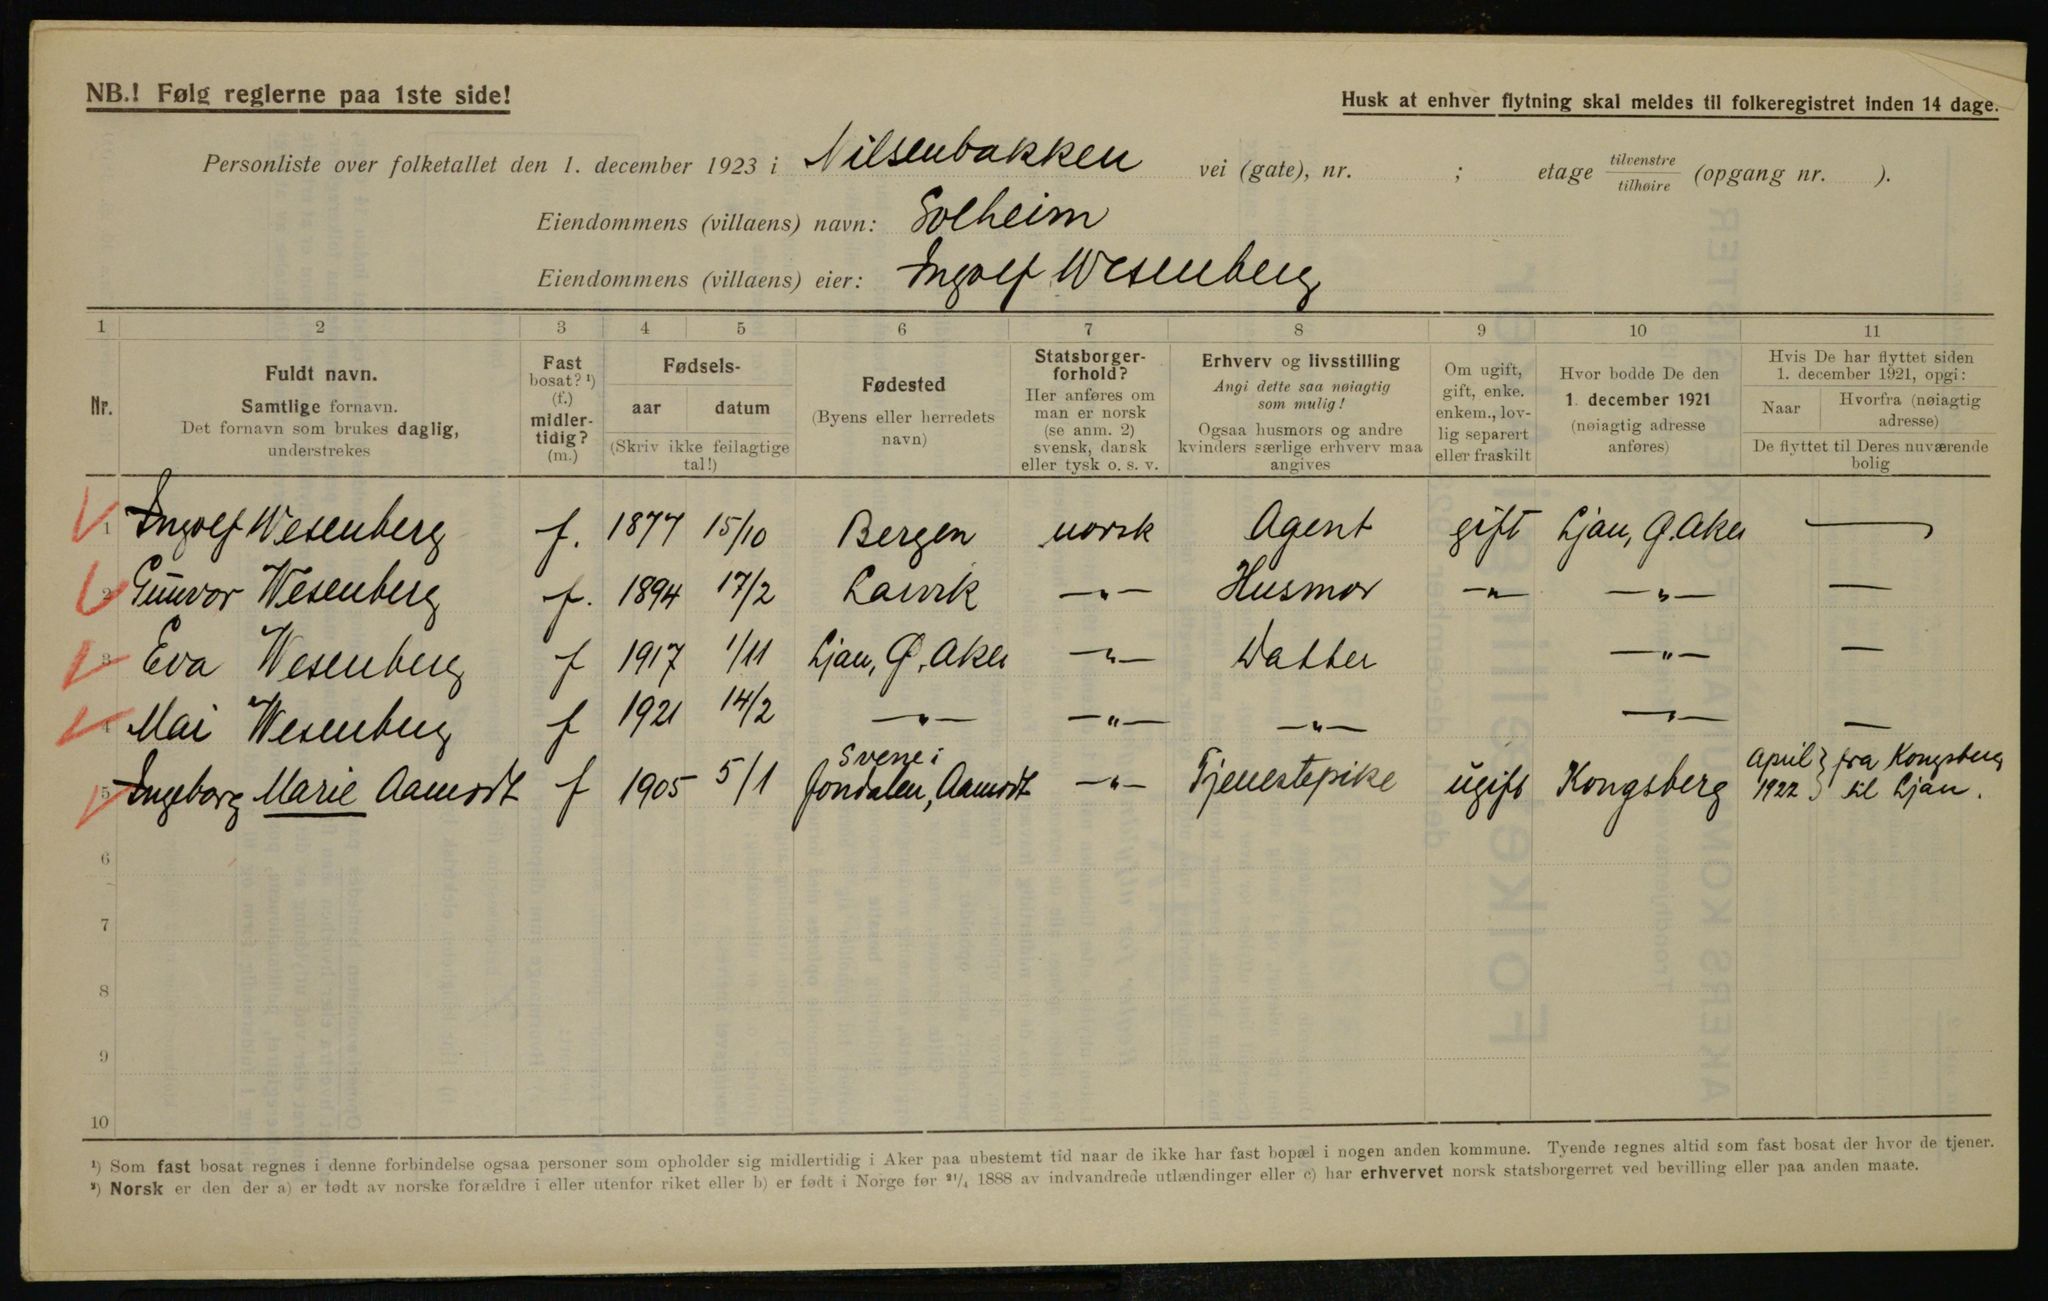 NB.! Følg reglerne paa 1ste side!
Husk at enhver flytning skal meldes til folkeregistret inden 14 dage.
Personliste over folketallet den 1. december 1923 i Nilsenbakken vei (gate), nr. ; etage tilvenstre / tilhøire (opgang nr. ).
Eiendommens (villaens) navn: Solheim
Eiendommens (villaens) eier: Ingolf Wesenberg
1 2 3 4 5 6 7 8 9 10 11
Nr.
Fuldt navn.
Samtlige fornavn.
Det fornavn som brukes daglig,
understrekes
Fast
bosat? ¹)
(f.)
midler-
tidig?
(m.)
Fødsels-
aar datum
(Skriv ikke feilagtige
tal!)
Fødested
(Byens eller herredets
navn)
Statsborger-
forhold?
Her anføres om
man er norsk
(se anm. 2)
svensk, dansk
eller tysk o. s. v.
Erhverv og livsstilling
Angi dette saa nøiagtig
som mulig!
Ogsaa husmors og andre
kvinders særlige erhverv maa
angives
Om ugift,
gift, enke.
enkem., lov-
lig separert
eller fraskilt
Hvor bodde De den
1. december 1921
(nøiagtig adresse
anføres)
Hvis De har flyttet siden
1. december 1921, opgi:
Naar
Hvorfra (nøiagtig
adresse)
De flyttet til Deres nuværende
bolig
1 Ingolf Wesenberg f. 1877 15/10 Bergen norsk Agent gift Ljan, Ø. Aker —
2 Gunvor Wesenberg f. 1894 17/2 Larvik —"— Husmor —"— —"— —
3 Eva Wesenberg f 1917 1/11 Ljan, Ø. Aker —"— Datter —"— —
4 Mai Wesenberg f 1921 14/2 —"— —"— —"— —"— —
5 Ingeborg Marie Aamodt f 1905 5/1 Svene i Jondalen, Aamodt —"— Tjenestepike ugift Kongsberg April 1922 } fra Kongsberg til Ljan.
6
7
8
9
10
¹) Som fast bosat regnes i denne forbindelse ogsaa personer som opholder sig midlertidig i Aker paa ubestemt tid naar de ikke har fast bopæl i nogen anden kommune. Tyende regnes altid som fast bosat der hvor de tjener.
²) Norsk er den der a) er født av norske forældre i eller utenfor riket eller b) er født i Norge før ²¹/₄ 1888 av indvandrede utlændinger eller c) har erhvervet norsk statsborgerret ved bevilling eller paa anden maate.